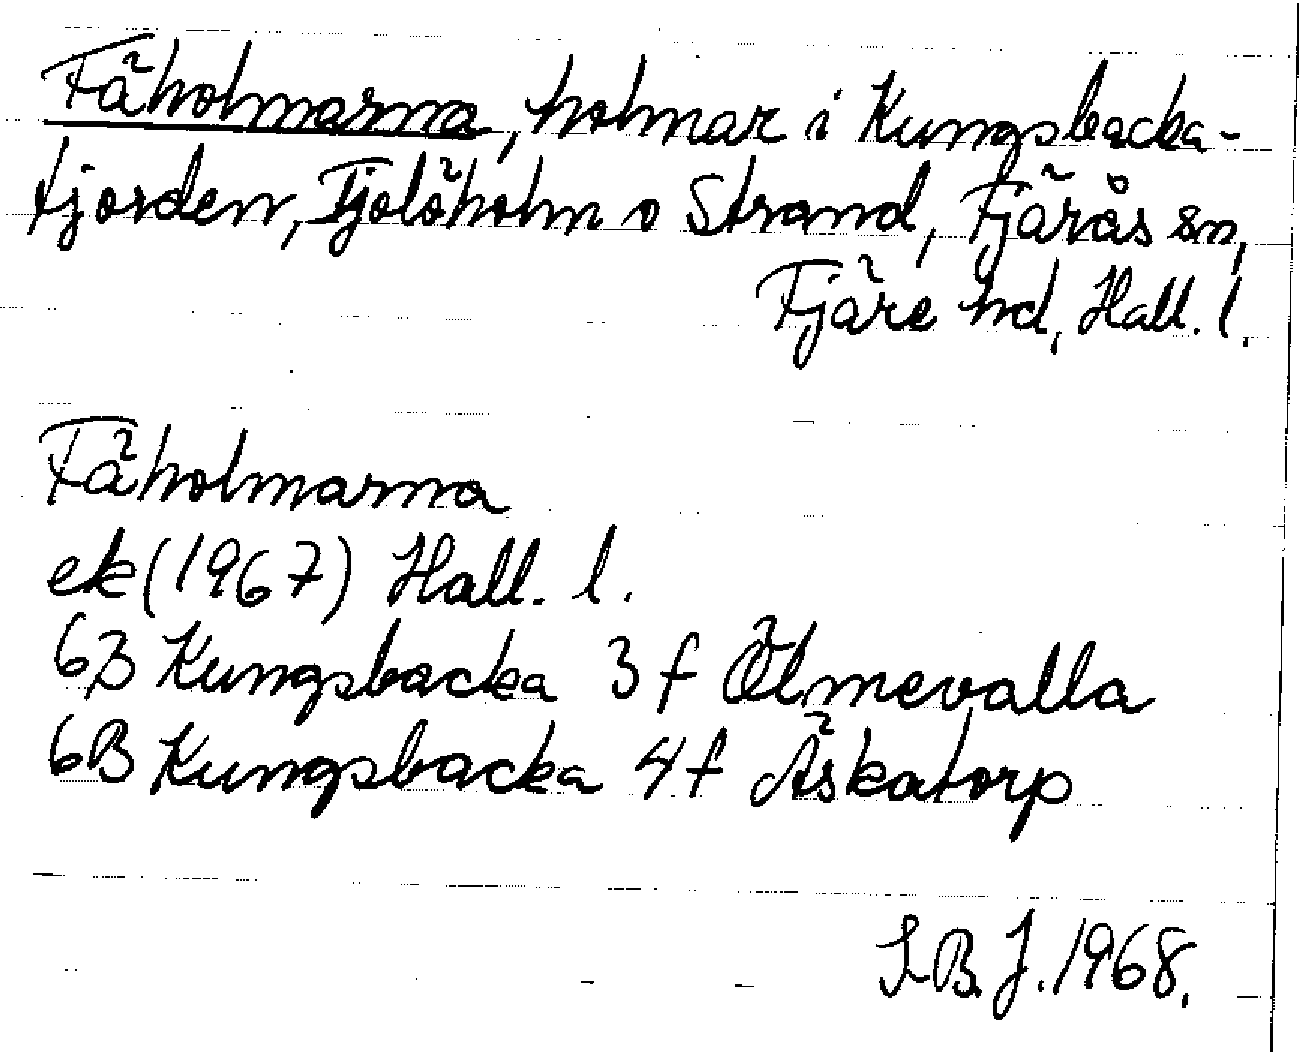 Fäholmarna, holmar i Kungsbacka-
fjorden, Tjolöholm o Strand, Fjärås sn,
Fjäre hd, Hall. l.
Fäholmarna
ek (1967) Hall. l.
6B Kungsbacka 3f Ölmevalla
6B Kungsbacka 4f Äskatorp
B.J. 1968.